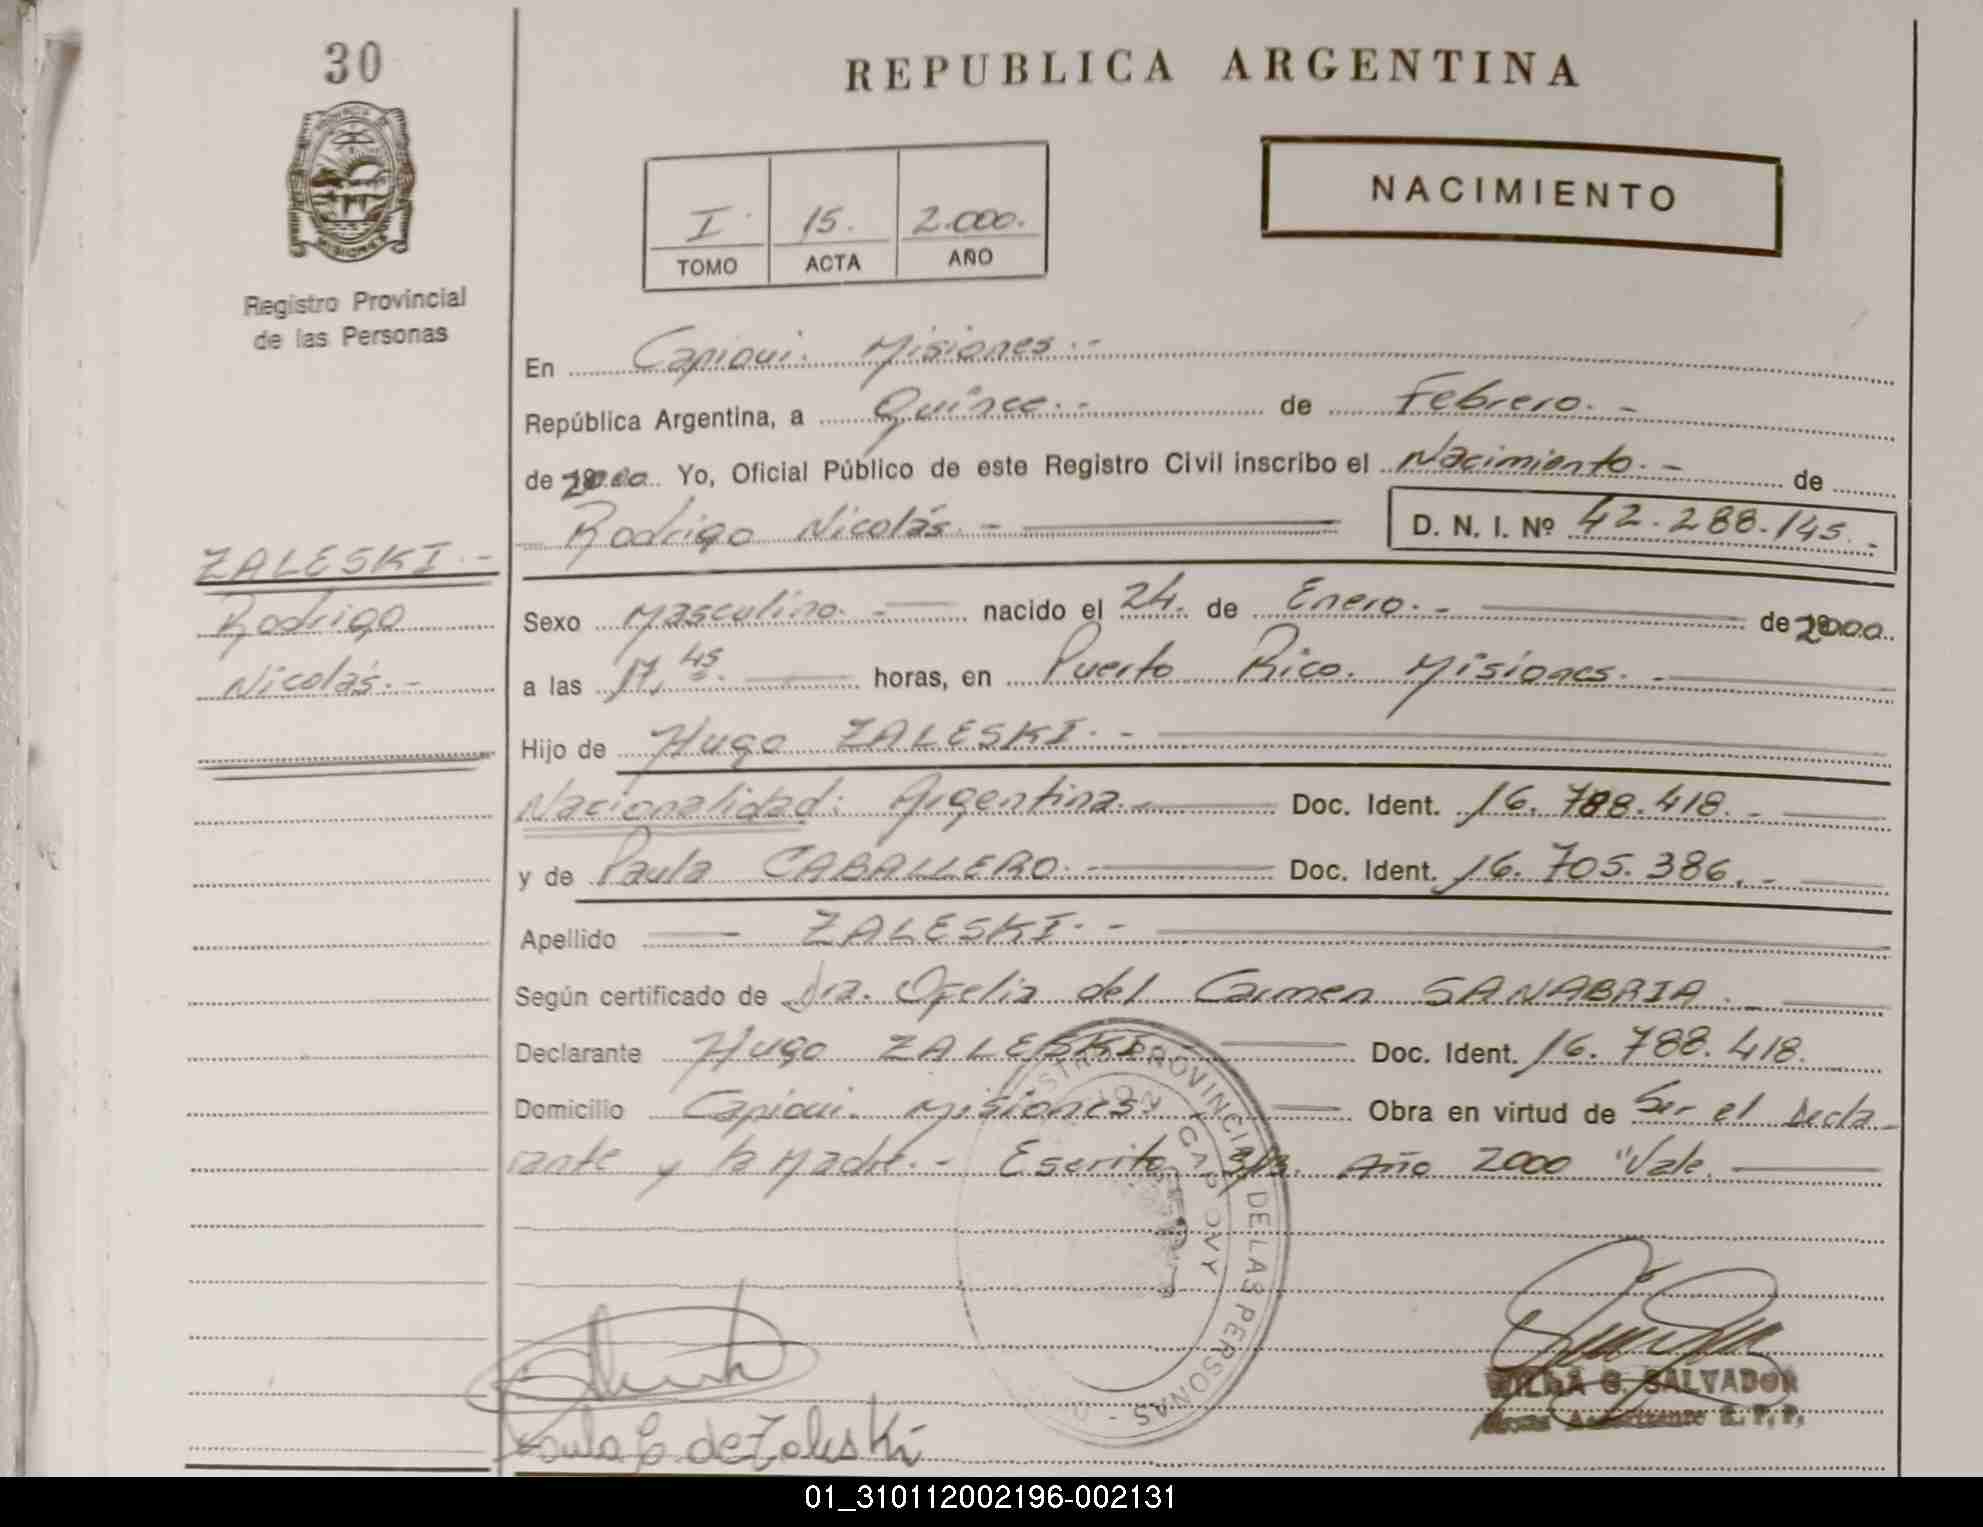 30
REPUBLICA ARGENTINA
NACIMIENTO
I. 15. 2.000.
TOMO ACTA AÑO
Registro Provincial
de las Personas
En Capioui. Misiones.-
República Argentina, a Quince.- de Febrero.-
de 2000 Yo, Oficial Público de este Registro Civil inscribo el Nacimiento.- de
Rodrigo Nicolás.- D. N. I. Nº 42.288.145.-
ZALESKI.-
Rodrigo
Nicolás.-
Sexo Masculino.- nacido el 24. de Enero.- de 2000.
a las 17,45. horas, en Puerto Rico. Misiones.-
Hijo de Hugo ZALESKI.-
Nacionalidad: Argentina.- Doc. Ident. 16.788.418.-
y de Paula CABALLERO.- Doc. Ident. 16.705.386.-
Apellido ZALESKI.-
Según certificado de Dra. Ofelia del Carmen SANABRIA.-
Declarante Hugo ZALESKI.- Doc. Ident. 16.788.418.
Domicilio Capioui. Misiones.- Obra en virtud de Ser el Decla-
rante y la Madre.- Escrito s/r. Año 2000 "Vale.
REGISTRO PROVINCIAL DE LAS PERSONAS
CAPIOVY
Paula C de Zaleski
WILMA G. SALVADOR
01_310112002196-002131